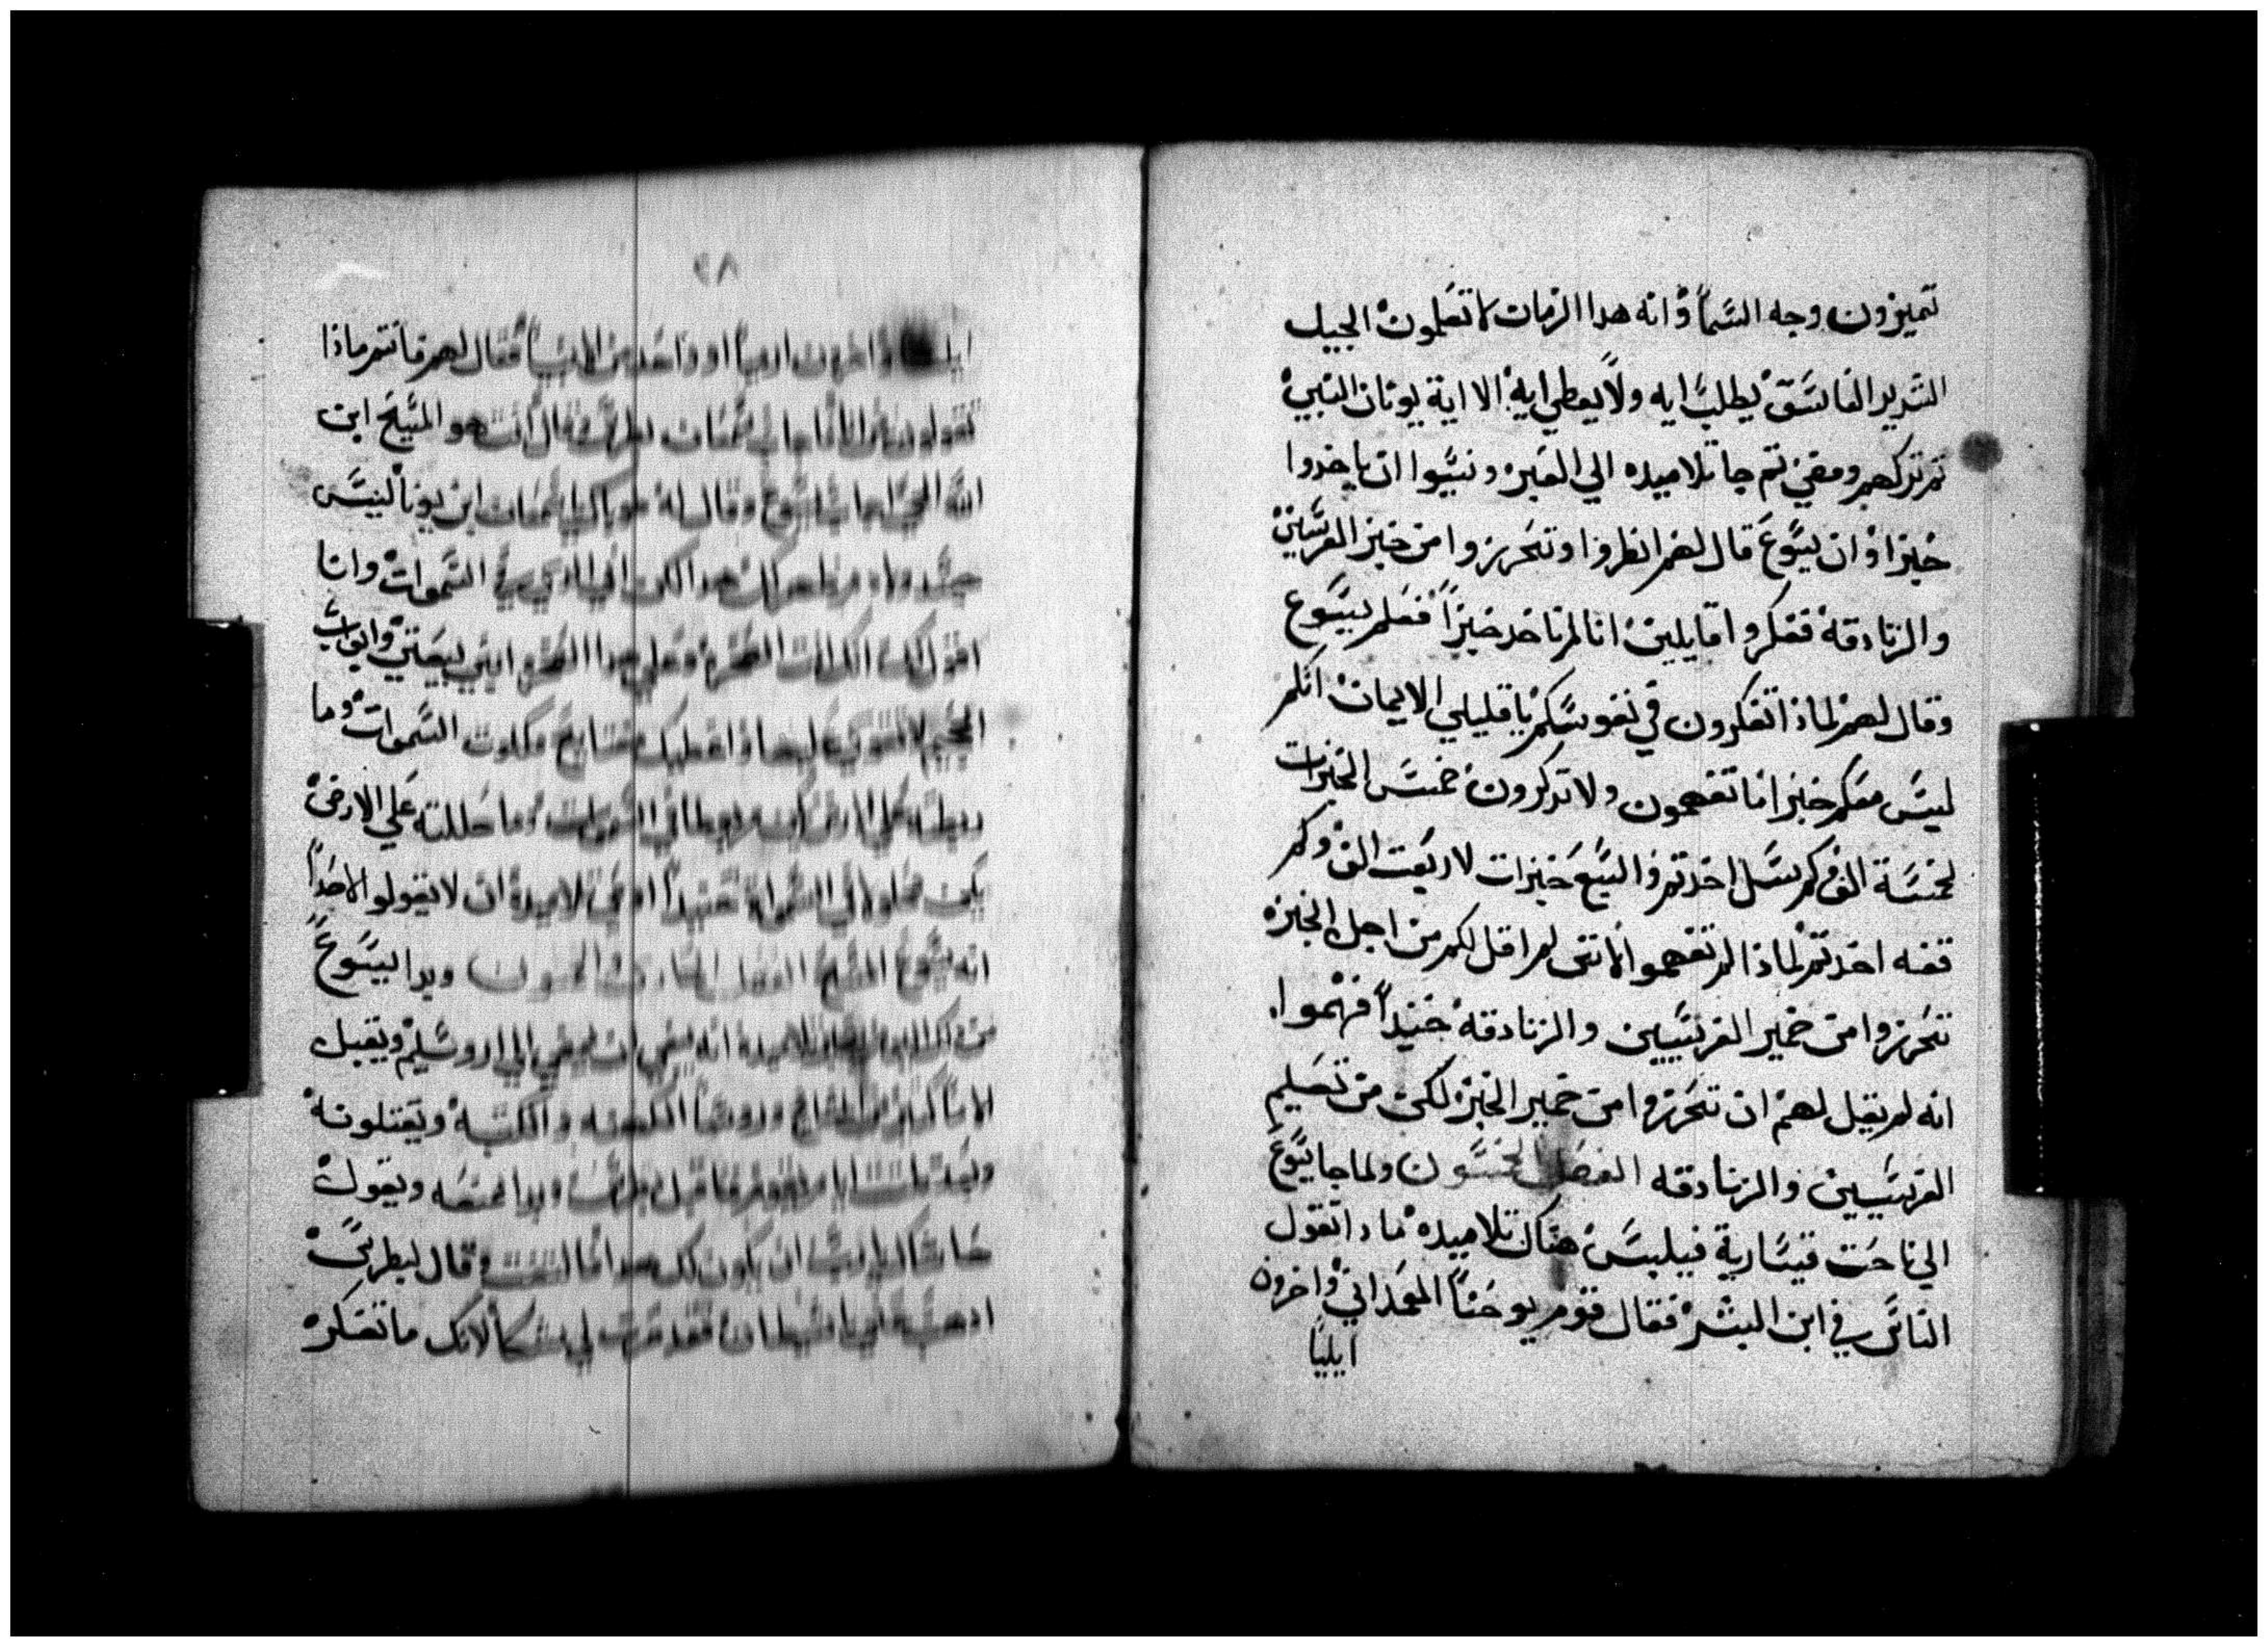 تميزون وجه السما وانه هدا الزمان لا تعلمون الجيل
الشرير الفاسق يطلب ايه ولا يعطي ايه الا اية يونان النبي
تم تركهم ومضي تم جا تلاميده الي العبر ونسيوا ان ياخدوا
خبزا وان يسوع قال لهم انظروا وتحرزوا من خبز الفريسين
والزنادقه ففكروا قايلين انا لم ناخد خبزا فعلم يسوع
وقال لهم لماذا تفكرون في نفوسكم يا قليلي الايمان انكم
ليس معكم خبز اما تفهمون ولا تدكرون خمس الخبزات
لخمسة الف وكم سل اخدتم والسبع خبزات لاربعت الف وكم
قفه اخدتم لماذا لم تفهموا لانني لم اقل لكم من اجل الخبزه
تتحرزوا من خمير الفريسيين والزنادقه حنيدا فهموا
انه لم يقيل لهم ان تتحرزوا من خمير الخبز لكن من تعليم
الفريسيين والزنادقه الفصل الخمسون ولما جا يسوع
الي ناحت قيسارية فيلبس هناك تلاميده مادا تقول
الناس في ابن البشر فقال قوم يوحنا المعمداني واخرون
ايليا
٢٨
واخرون ارميا او واحد من الانبيا فقال لهم فانتم ماذا
تقولون اني انا اجاب سمعان بطرس قال انت هو المسيح ابن
الله الحي اجاب يسوع وقال له طوباك يا سمعان ابن يونا ليس
جسد ولا دم اظهر لك هدا لكن ابي الدي في السموات وانا
اقول لك انك انت الصخره وعلي هدا الصخره ابني بيعتي وابواب
الجحيم لا تقوي عليها واعطيك مفاتيح ملكوت السموات وما
ربطته علي الارض يكون مربوطا في السموات وما حللته علي الارض
يكون محلولا في السموات حنيدا اوصي تلاميده ان لا يقولو لاحدا
انه يسوع المسيح الفصل الحادي والخمسون وبدا يسوع
من دلك اليوم تلاميده انه ينبغي ان يمضي الي اروشليم ويقبل
الاما كثيره من المشايخ وروسا الكهنه والكتبه ويقتلونه
وبعد تلات ايام يقوم فاقبل بطرس وبدا يمنعه ويقول
حاشاك يا رب ان يكون لك هدا فالتفت وقال لبطرس
ادهب خلفي يا شيطان فقد صرت لي شكا لانك ما تفكر